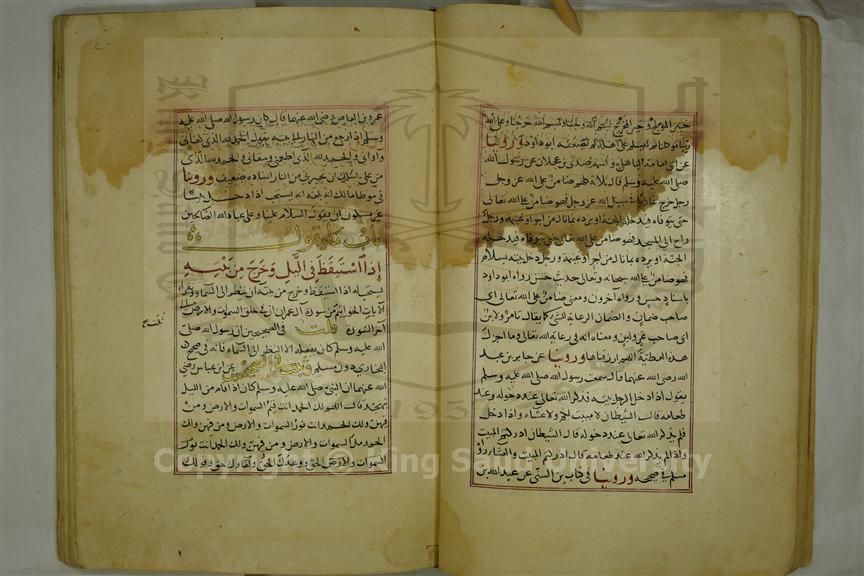 خير المولج وخير المخرج بسم الله ولجنا وبسم الله خرجنا وعلى الله
ربنا توكلنا ثم ليسلم على اهله لم يضعفه ابو داود وروينا
عن ابي امامة الباهلي واسمه صدي بن عجلان عن رسول الله
صلى الله عليه وسلم قال ثلاثة كلهم ضامن على الله عز وجل
رجل خرج غازيا في سبيل الله عز وجل فهو ضامن على الله تعالى
حتى يتوفاه فيدخله الجنة او يرده بما نال من اجر او غنيمة ورجل
راح الى المسجد فهو ضامن على الله تعالى حتى يتوفاه فيدخله
الجنة او يرده بما نال من اجر او غنيمة ورجل دخل بيته بسلام
فهو ضامن على الله سبحانه وتعالى حديث حسن رواه ابو داود
باسناد حسن ورواه اخرون ومعنى ضامن على الله تعالى اي
صاحب ضمان والضمان الرعاية للشي كما يقال تامر ولابن
اي صاحب تمر ولبن ومعناه انه في رعاية الله تعالى وما اجزل
هذه العطية اللهم ارزقناها وروينا عن جابر بن عبد
الله رضي الله عنهما قال سمعت رسول الله صلى الله عليه وسلم
يقول اذا دخل الرجل بيته فذكر الله تعالى عند دخوله وعند
طعامه قال الشيطان لا مبيت لكم ولا عشاء واذا دخل
فلم يذكر الله تعالى عند دخوله قال الشيطان ادركتم المبيت
واذا لم يذكر الله عند طعامه قال ادركتم المبيت والعشاء رواه
مسلم في صحيحه وروينا في كتاب بن السني عن عبد الله بن
عمرو بن العاص رضي الله عنهما قال كان رسول الله صلى الله عليه
وسلم اذا رجع من النهار الى بيته يقول الحمد لله الذي كفاني
واواني والحمد لله الذي اطعمني وسقاني والحمد لله الذي
من علي اسالك ان تجيرني من النار اسناده ضعيف وروينا
في موطا مالك انه بلغه انه يستحب اذا دخل بيتا
غير مسكون ان يقول السلام علينا وعلى عباد الله الصالحين
باب ما يقول
إذا استيقظ في الليل وخرج من بيته
يستحب له اذا استيقظ وخرج من بيته ان ينظر الى السماء ويقرا
الايات الخواتيم من سورة آل عمران ان في خلق السموات والارض الى
اخر السورة قلت في الصحيحين ان رسول الله صلى
الله عليه وسلم كان يفعله الا النظر الى السماء فانه في صحيح
البخاري دون مسلم وثبت في الصحيحين عن بن عباس رضي
الله عنهما ان النبي صلى الله عليه وسلم كان اذا قام من الليل
تهجد قال اللهم لك الحمد انت قيم السموات والارض ومن
فيهن ولك الحمد انت نور السموات والارض ومن فيهن ولك
الحمد ملك السموات والارض ومن فيهن ولك الحمد انت نور
السموات والارض الحق ووعدك الحق ولقاؤك حق وقولك
1957
Copyright © King Saud University